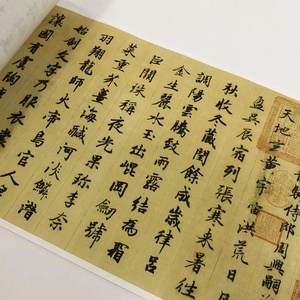 侍郎周興嗣
天地玄黃宇宙洪荒日
盈昃辰宿列張寒來暑往
秋收冬藏閏餘成歲律呂
調陽雲騰致雨露結為霜
金生麗水玉出崑岡劍號
巨闕珠稱夜光果珍李柰
菜重芥薑海鹹河淡鱗潛
羽翔龍師火帝鳥官人
始制文字乃服衣裳
讓國有虞陶